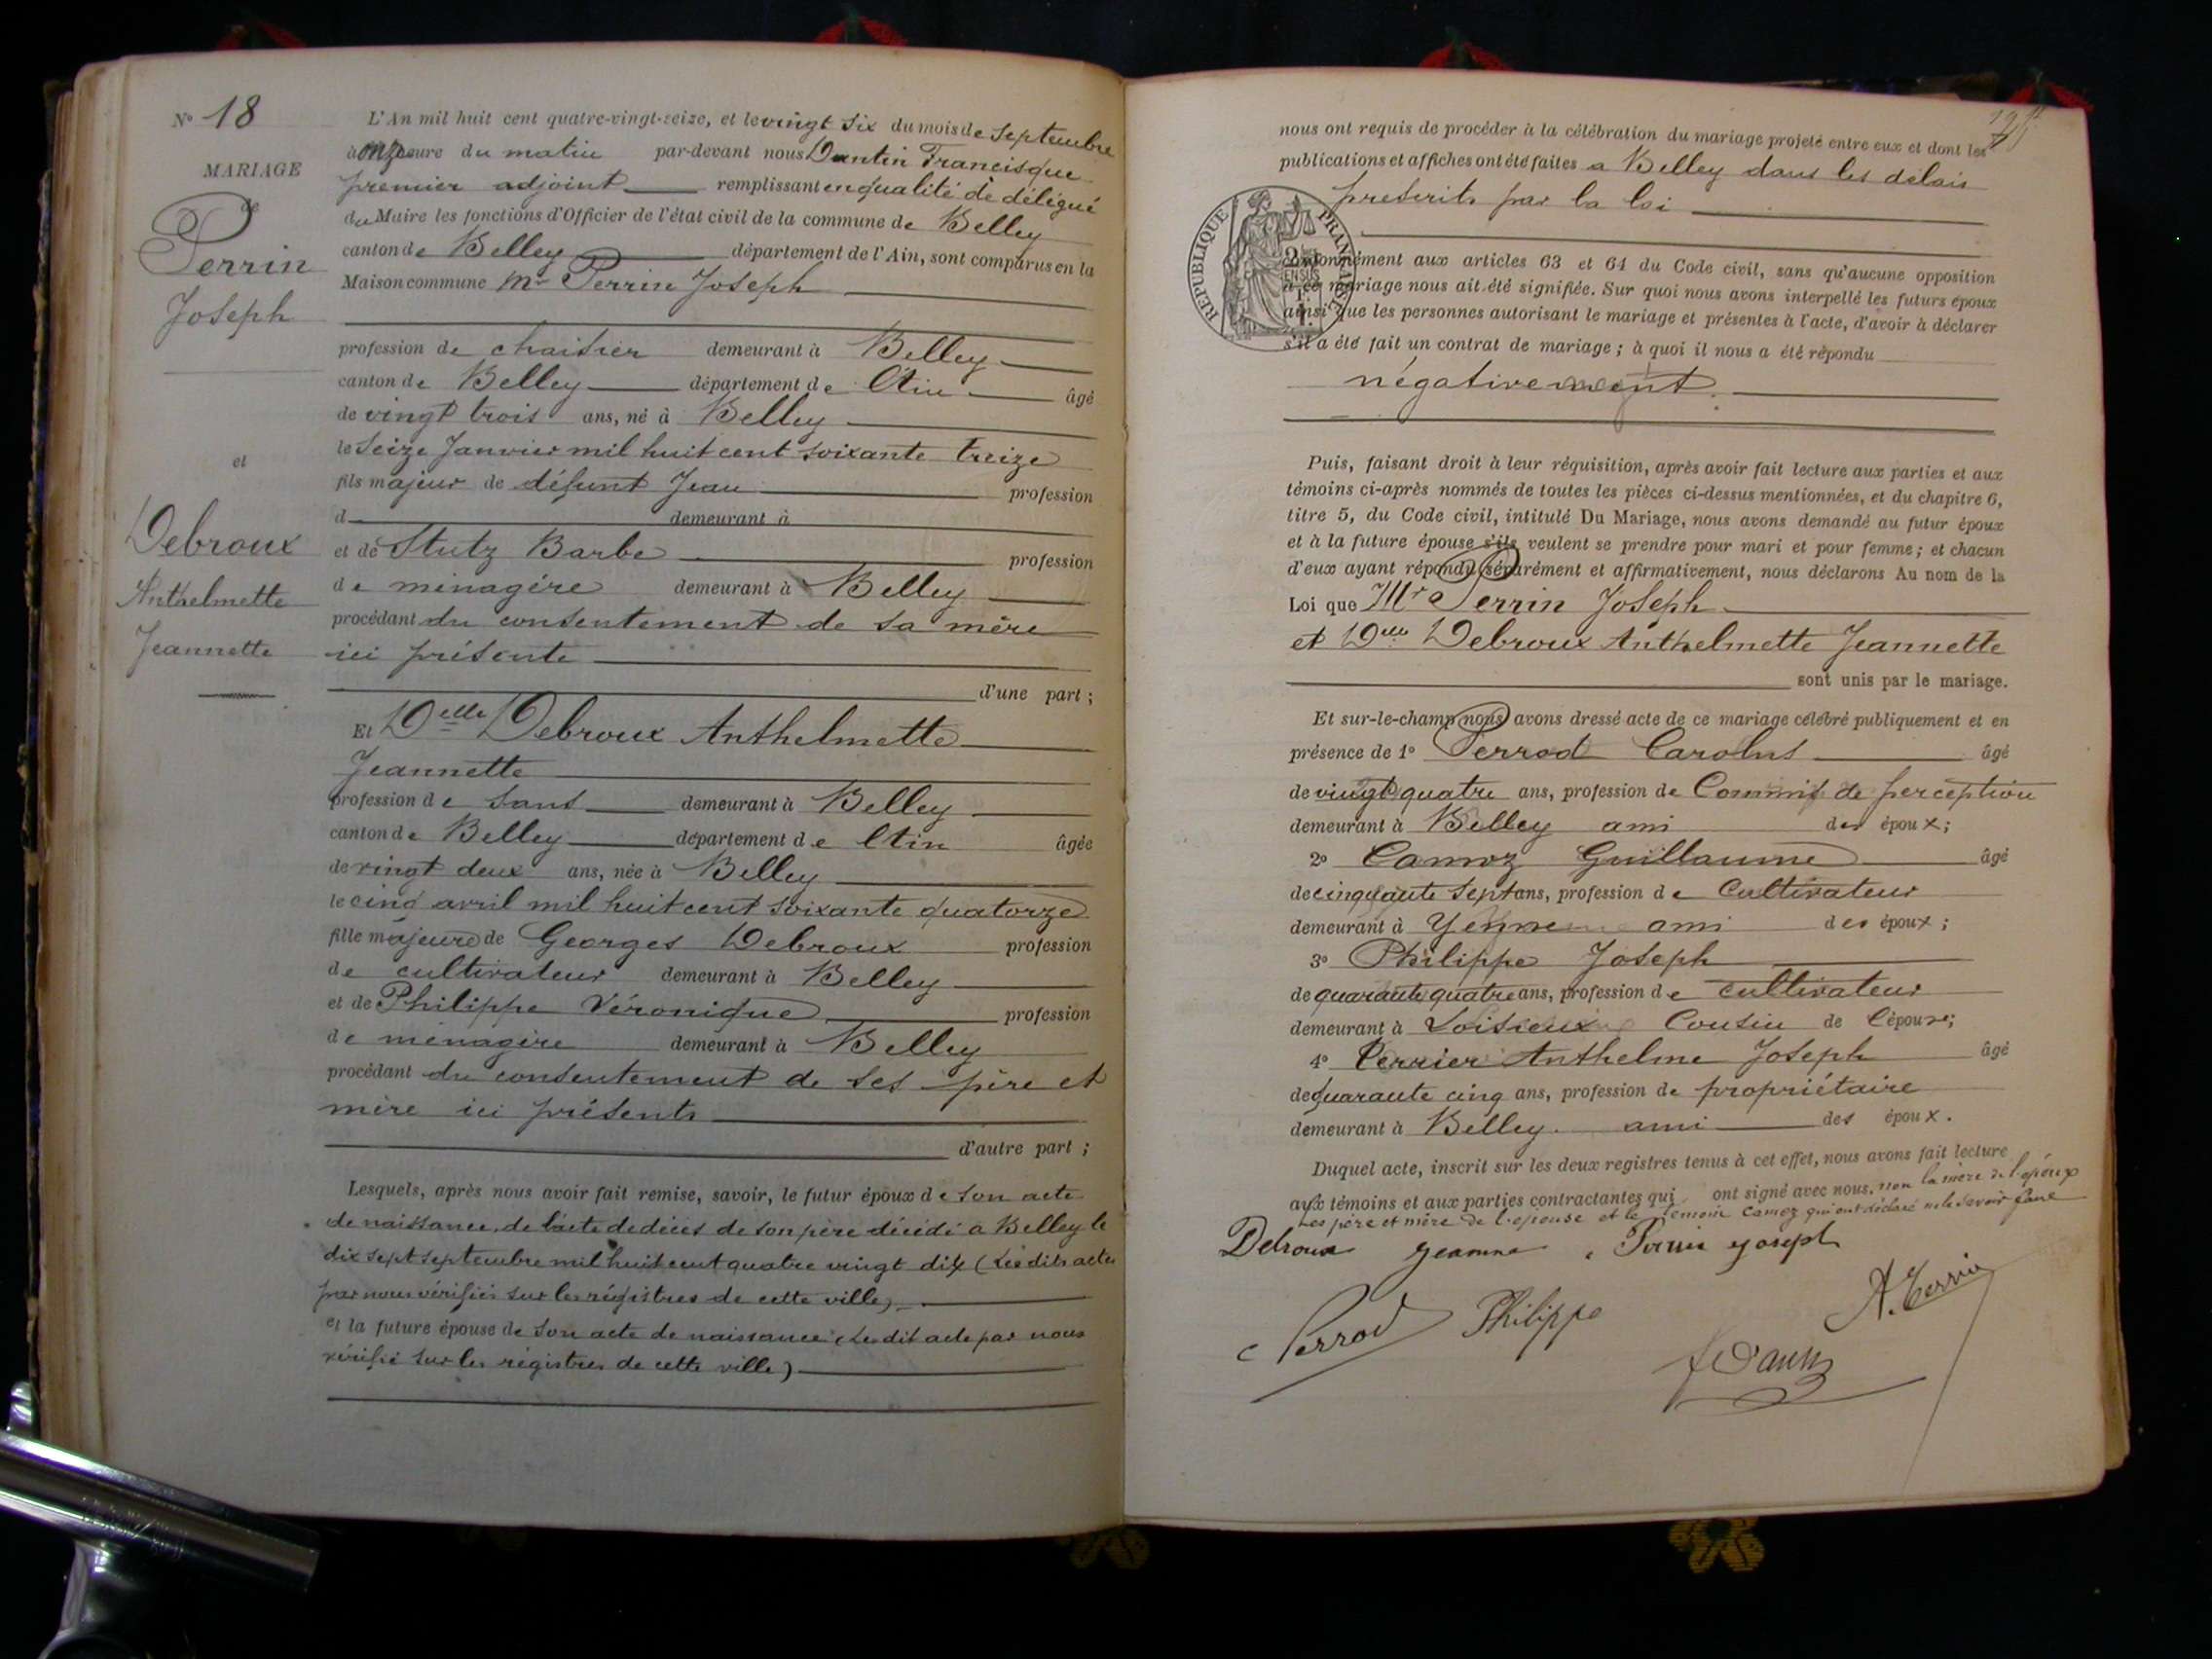 N° 18
MARIAGE
de
Perrin
Joseph
et
Debroux
Anthelmette
Jeannette
L'An mil huit cent quatre-vingt-seize, et le vingt six du mois de Septembre
à onze heure du matin par-devant nous Dantin Francisque
premier adjoint remplissant en qualité de délégué
du Maire les fonctions d'Officier de l'état civil de la commune de Belley
canton de Belley département de l'Ain, sont comparus en la
Maison commune Mr Perrin Joseph
profession de chaisier demeurant à Belley
canton de Belley département de l'Ain âgé
de vingt trois ans, né à Belley
le Seize Janvier mil huit cent soixante treize
fils majeur de défunt Jean profession
d demeurant à
et de Stutz Barbe profession
de ménagère demeurant à Belley
procédant du consentement de sa mère
ici présente
d'une part ;
Et Delle Debroux Anthelmette
Jeannette
profession de sans demeurant à Belley
canton de Belley département de l'Ain âgée
de vingt deux ans, née à Belley
le cinq avril mil huit cent soixante quatorze
fille majeure de Georges Debroux profession
de cultivateur demeurant à Belley
et de Philippe Véronique profession
de ménagère demeurant à Belley
procédant du consentement de ses père et
mère ici présents
d'autre part ;
Lesquels, après nous avoir fait remise, savoir, le futur époux de son acte
de naissance, de l'acte de décès de son père décédé à Belley le
dix sept septembre mil huit cent quatre vingt dix (Les dits actes
par nous vérifiés sur les régistres de cette ville)
et la future épouse de son acte de naissance (Le dit acte par nous
vérifié sur les régistres de cette ville)
nous ont requis de procéder à la célébration du mariage projeté entre eux et dont les
publications et affiches ont été faites a Belley dans les délais
prescrits par la loi
REPUBLIQUE FRANÇAISE
conformément aux articles 63 et 64 du Code civil, sans qu'aucune opposition
à ce mariage nous ait été signifiée. Sur quoi nous avons interpellé les futurs époux
ainsi que les personnes autorisant le mariage et présentes à l'acte, d'avoir à déclarer
s'il a été fait un contrat de mariage ; à quoi il nous a été répondu
négativement.
Puis, faisant droit à leur réquisition, après avoir fait lecture aux parties et aux
témoins ci-après nommés de toutes les pièces ci-dessus mentionnées, et du chapitre 6,
titre 5, du Code civil, intitulé Du Mariage, nous avons demandé au futur époux
et à la future épouse s'ils veulent se prendre pour mari et pour femme ; et chacun
d'eux ayant répondu séparément et affirmativement, nous déclarons Au nom de la
Loi que Mr Perrin Joseph
et Delle Debroux Anthelmette Jeannette
sont unis par le mariage.
Et sur-le-champ nous avons dressé acte de ce mariage célébré publiquement et en
présence de 1° Perrod Carolus âgé
de vingt quatre ans, profession de Commis de perception
demeurant à Belley ami des époux ;
2° Camoz Guillaume âgé
de cinquante sept ans, profession de Cultivateur
demeurant à Yenne ami des époux ;
3° Philippe Joseph
de quarante quatre ans, profession de cultivateur
demeurant à Loisieux Cousin de l'épouse ;
4° Perrier Anthelme Joseph âgé
de quarante cinq ans, profession de propriétaire
demeurant à Belley. ami des époux.
Duquel acte, inscrit sur les deux registres tenus à cet effet, nous avons fait lecture
aux témoins et aux parties contractantes qui ont signé avec nous. non la mère de l'époux
Les père et mère de l'épouse et le témoin Camoz qui ont déclaré ne le savoir faire
Debroux Jeanne Perrin Joseph
C Perrod Philippe